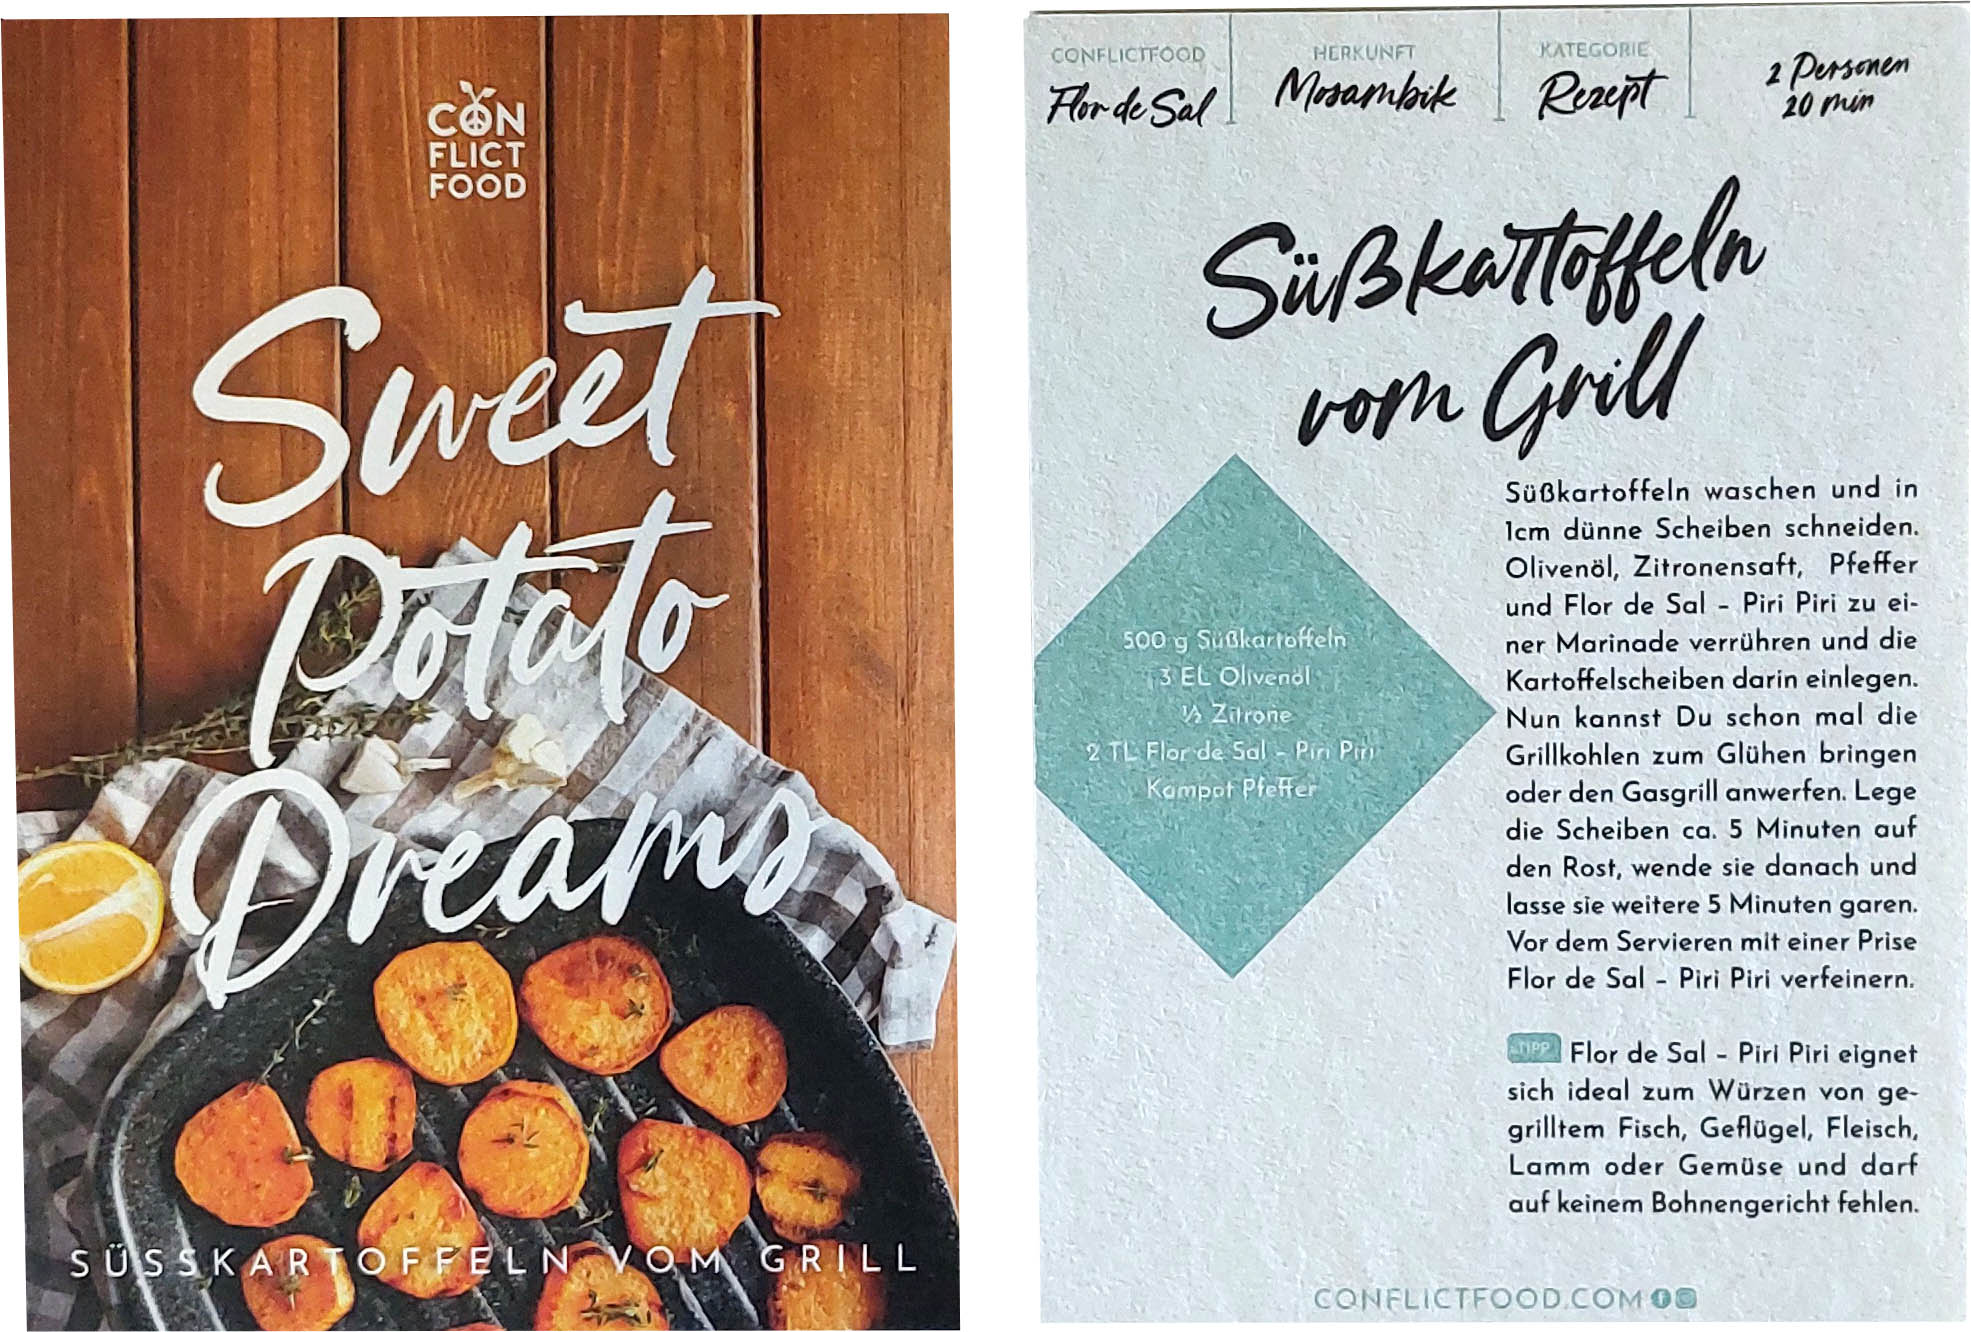 CON
FLICT
FOOD
Sweet
Potato
Dreams
SÜSSKARTOFFELN VOM GRILL
CONFLICTFOOD
Flor de Sal
HERKUNFT
Mosambik
KATEGORIE
Rezept
2 Personen
20 min
Süßkartoffeln
vom Grill
500 g Süßkartoffeln
3 EL Olivenöl
½ Zitrone
2 TL Flor de Sal - Piri Piri
Kampot Pfeffer
Süßkartoffeln waschen und in
1cm dünne Scheiben schneiden.
Olivenöl, Zitronensaft, Pfeffer
und Flor de Sal - Piri Piri zu ei-
ner Marinade verrühren und die
Kartoffelscheiben darin einlegen.
Nun kannst Du schon mal die
Grillkohlen zum Glühen bringen
oder den Gasgrill anwerfen. Lege
die Scheiben ca. 5 Minuten auf
den Rost, wende sie danach und
lasse sie weitere 5 Minuten garen.
Vor dem Servieren mit einer Prise
Flor de Sal - Piri Piri verfeinern.
TIPP Flor de Sal - Piri Piri eignet
sich ideal zum Würzen von ge-
grilltem Fisch, Geflügel, Fleisch,
Lamm oder Gemüse und darf
auf keinem Bohnengericht fehlen.
CONFLICTFOOD.COM